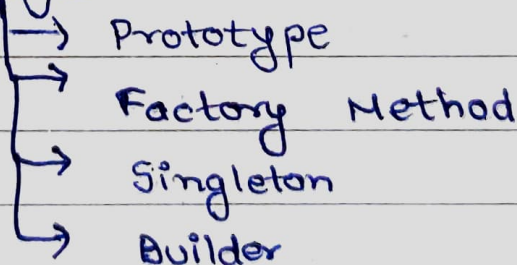 → Prototype
→ Factory Method
→ Singleton
→ Builder